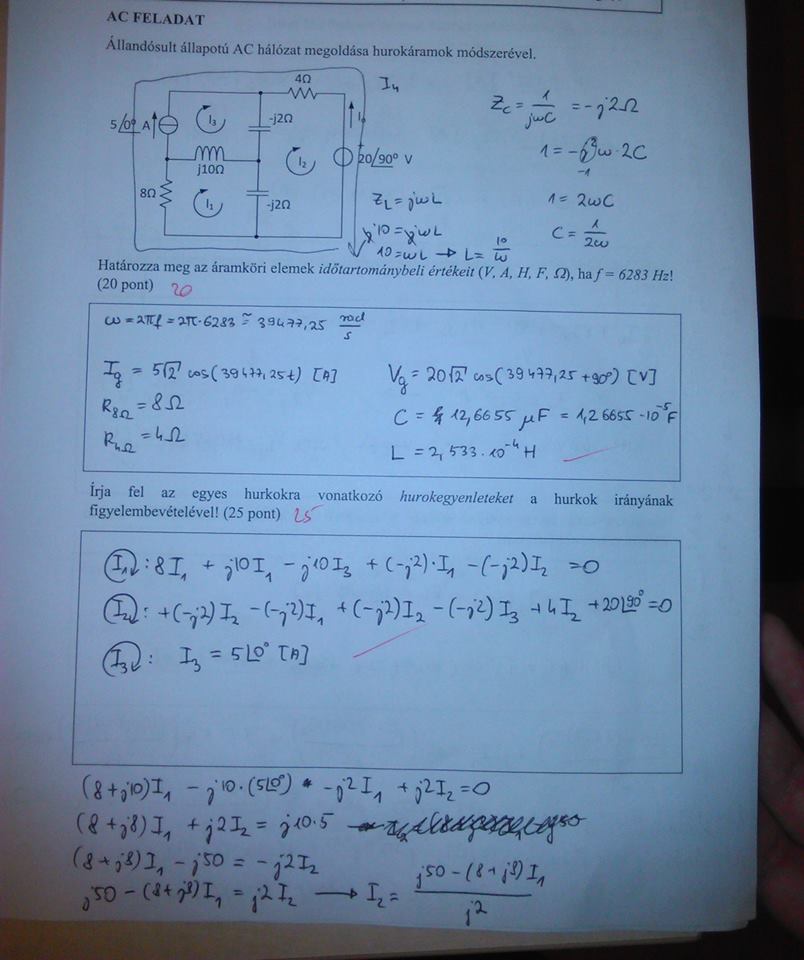 AC FELADAT
Állandósult állapotú AC hálózat megoldása hurokáramok módszerével.
4Ω
I₄
5/0° A
I₃
-j2Ω
j10Ω
I₂
20/90° V
8Ω
I₁
-j2Ω
Z_C = 1/(jωC) = -j2Ω
1 = -j²ω·2C
-1
1 = 2ωC
C = 1/(2ω)
Z_L = jωL
j10 = jωL
10 = ωL → L = 10/ω
Határozza meg az áramköri elemek időtartománybeli értékeit (V, A, H, F, Ω), ha f = 6283 Hz!
(20 pont) 20
ω = 2πf = 2π·6283 ≅ 39477,25 rad/s
I_g = 5√2 cos(39477,25t) [A]
V_g = 20√2 cos(39477,25+90°) [V]
R_8Ω = 8Ω
C = 12,6655 μF = 1,26655·10⁻⁵F
R_4Ω = 4Ω
L = 2,533·10⁻⁴ H
Írja fel az egyes hurkokra vonatkozó hurokegyenleteket a hurkok irányának
figyelembevételével! (25 pont) 25
I₁: 8I₁ + j10I₁ - j10I₃ + (-j2)·I₁ - (-j2)I₂ = 0
I₂: +(-j2)I₂ - (-j2)I₁ + (-j2)I₂ - (-j2)I₃ + 4I₂ + 20∠90° = 0
I₃: I₃ = 5∠0° [A]
(8+j10)I₁ - j10·(5∠0°) - j2I₁ + j2I₂ = 0
(8+j8)I₁ + j2I₂ = j10·5
(8+j8)I₁ - j50 = -j2I₂
j50 - (8+j8)I₁ = j2I₂ → I₂ = (j50 - (8+j8)I₁)/j2